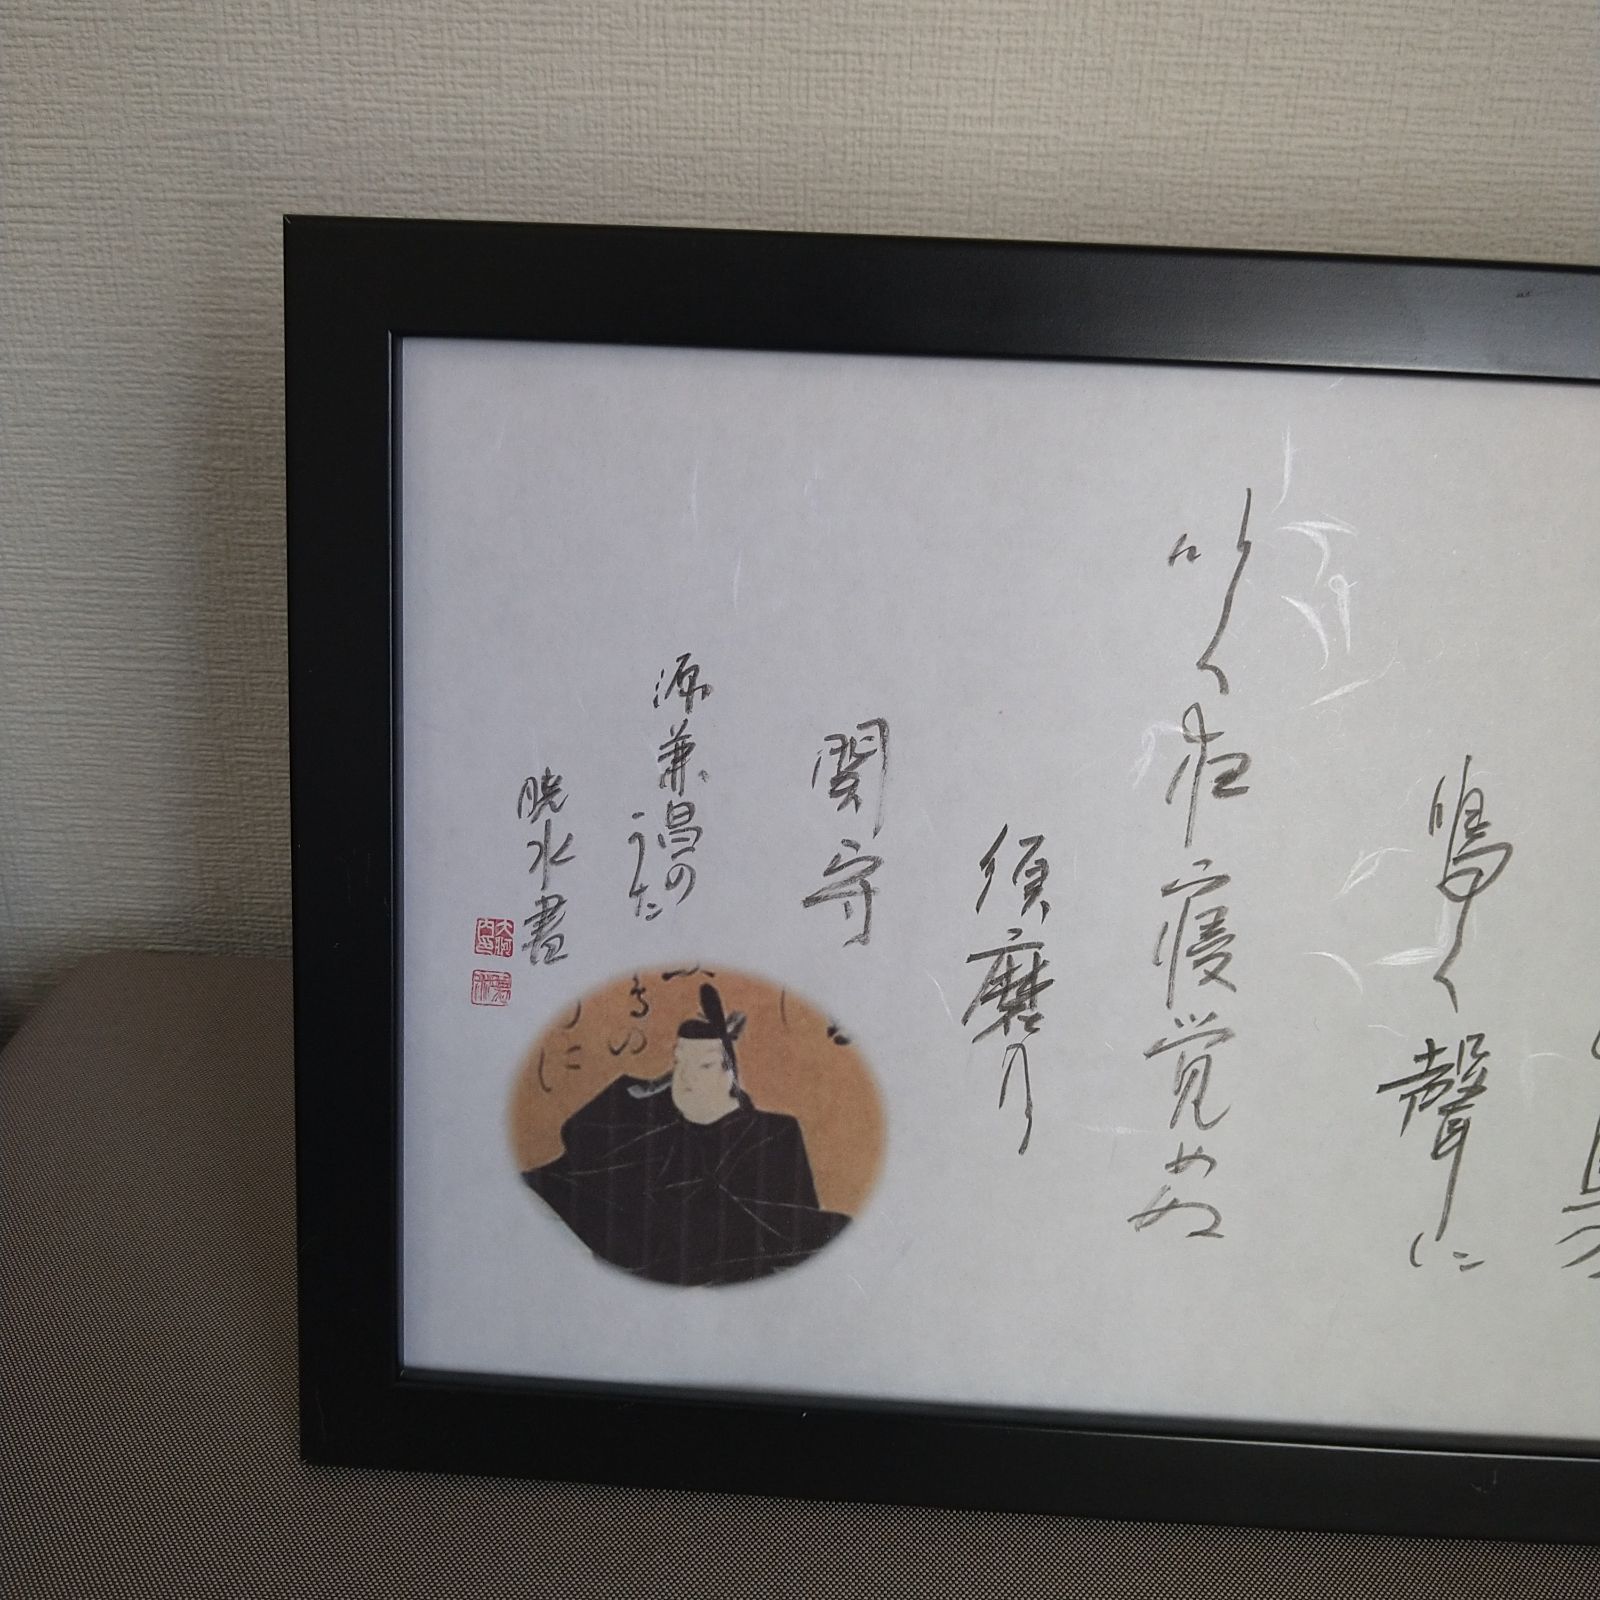 鳴く聲に
いく夜寝覚めぬ
須磨の
関守
源兼昌の
うた
暁水書